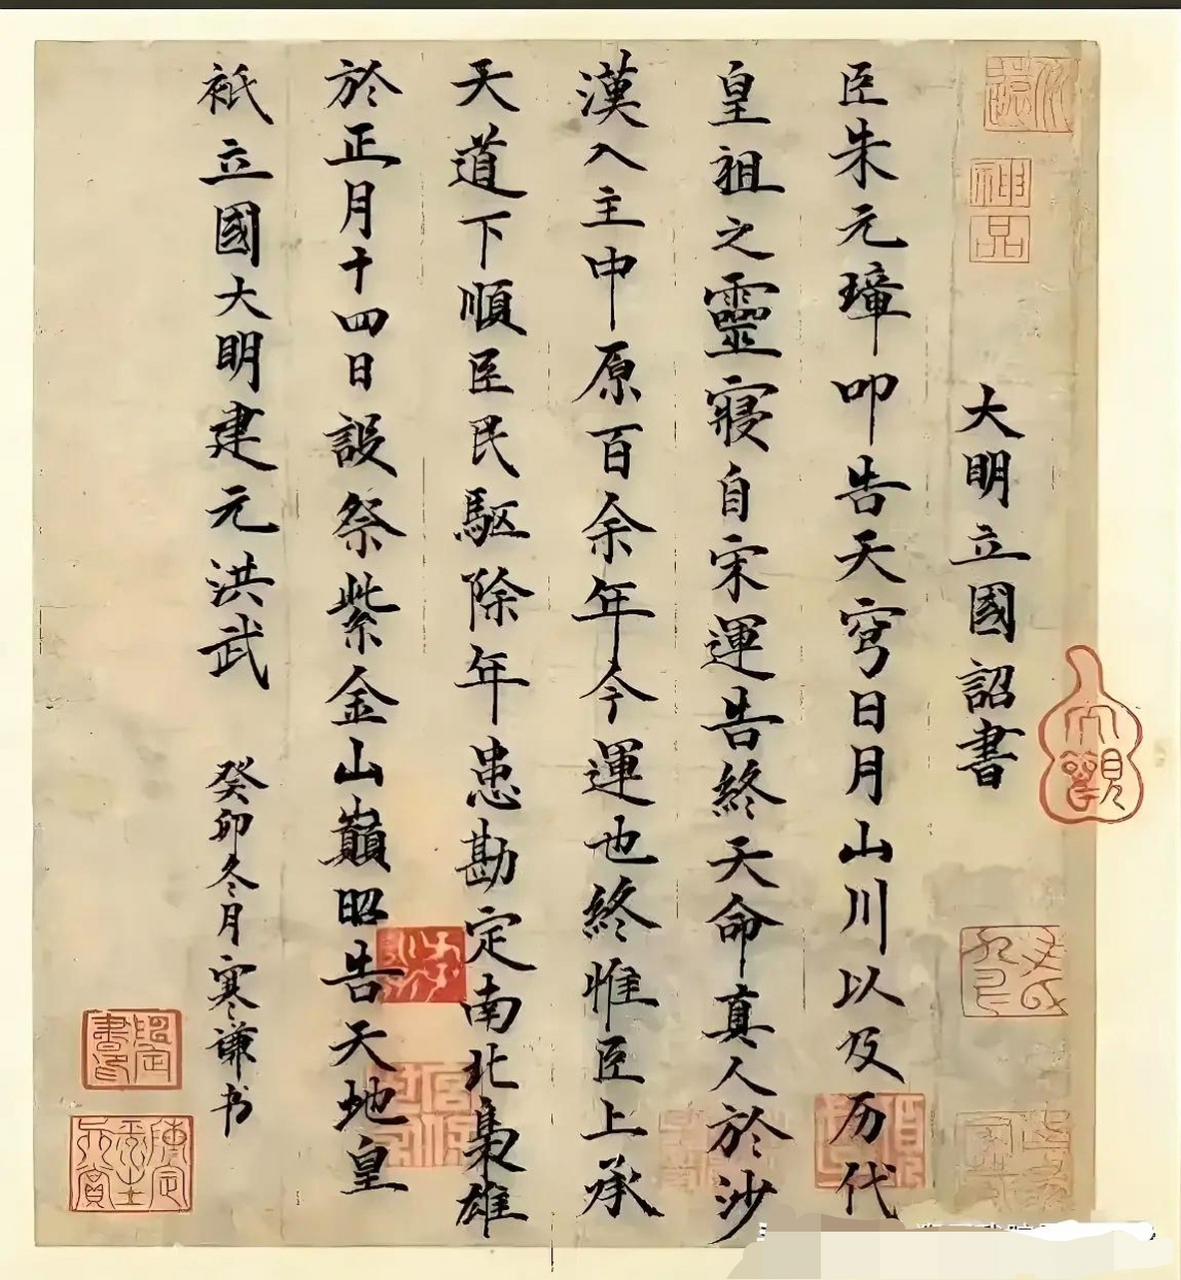 大明立國詔書
臣朱元璋叩告天穹日月山川以及历代
皇祖之靈寢自宋運告終天命真人於沙
漠入主中原百余年今運也終惟臣上承
天道下順臣民駆除年患勘定南北梟雄
於正月十四日設祭紫金山巔昭告天地皇
祇立國大明建元洪武
癸卯冬月寒谦书
神品
大觀